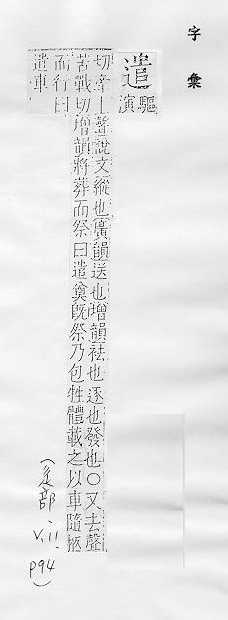 字彙
遣
驅
演
切牽上聲說文縱也廣韻送也增韻祛也逐也發也○又去聲
苦戰切增韻將葬而祭曰遣奠既祭乃包牲體載之以車隨柩
而行曰
遣車
(辵部-V.11-P94)